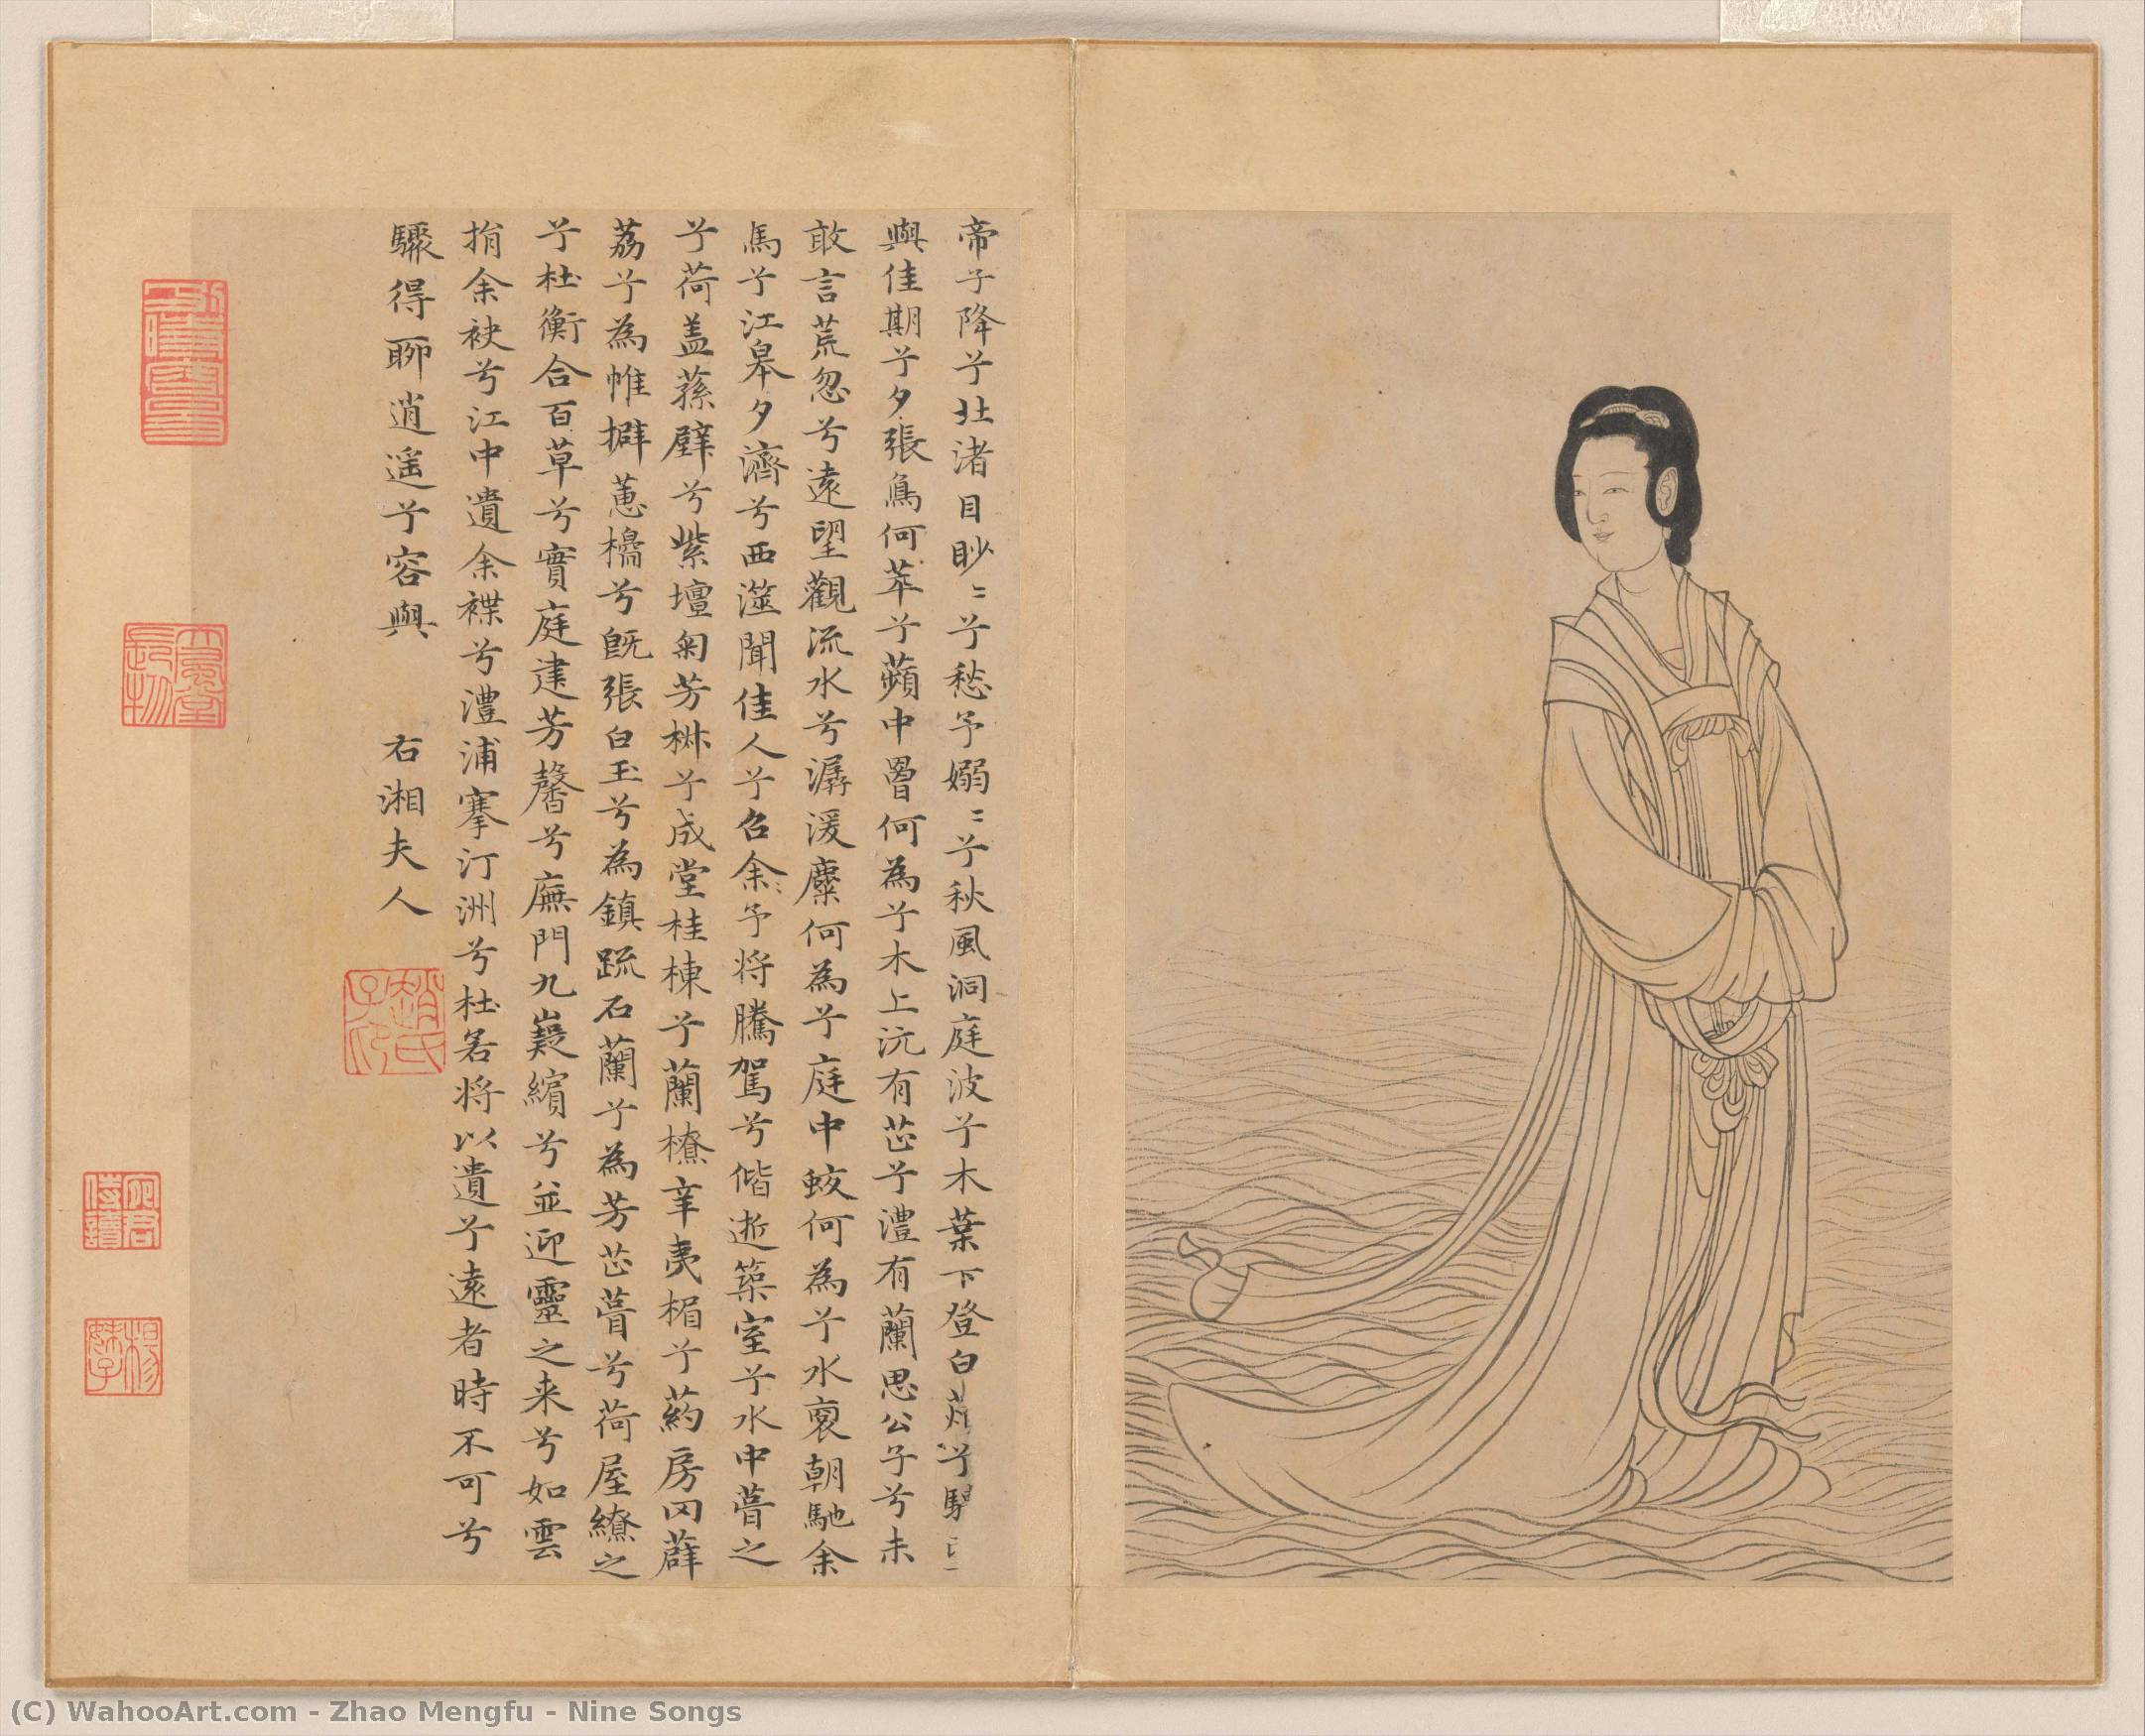 帝子降兮北渚目眇〻兮愁予嫋〻兮秋風洞庭波兮木葉下登白
與佳期兮夕張鳥何萃兮蘋中罾何為兮木上沅有芷兮澧有蘭思公子兮未
敢言荒忽兮遠望觀流水兮潺湲麋何為兮庭中蛟何為兮水裔朝馳余
馬兮江皋夕濟兮西澨聞佳人兮召余予将騰駕兮偕逝築室兮水中葺之
兮荷盖蓀壁兮紫壇匊芳椒兮成堂桂棟兮蘭橑辛夷楣兮葯房罔薜
荔兮為帷擗蕙櫋兮既張白玉兮為鎮疏石蘭兮為芳芷葺兮荷屋繚之
兮杜衡合百草兮實庭建芳馨兮廡門九嶷繽兮並迎靈之来兮如雲
捐余袂兮江中遺余褋兮澧浦搴汀洲兮杜若将以遺兮遠者時不可兮
驟得聊逍遥兮容與 右湘夫人
(C) WahooArt.com - Zhao Mengfu - Nine Songs